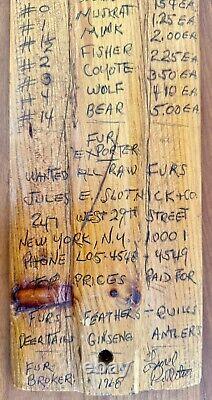 #0 MUSKRAT 1.25 EA
#1 MINK 2.00 EA
FISHER 2.25 EA
#2 COYOTE 3.50 EA
#3 WOLF EA
#4 BEAR 5.00 EA
#14
FUR
EXPORTER
WANTED ALL RAW FURS
JULES E. SLOTNICK + CO.
247 WEST 29TH STREET
NEW YORK, N.Y. 10001
PHONE LO5-4548-4549
PRICES PAID FOR
FURS - FEATHERS - QUILLS
DEERTAILS GINSENG ANTLERS
FUR
BROKER